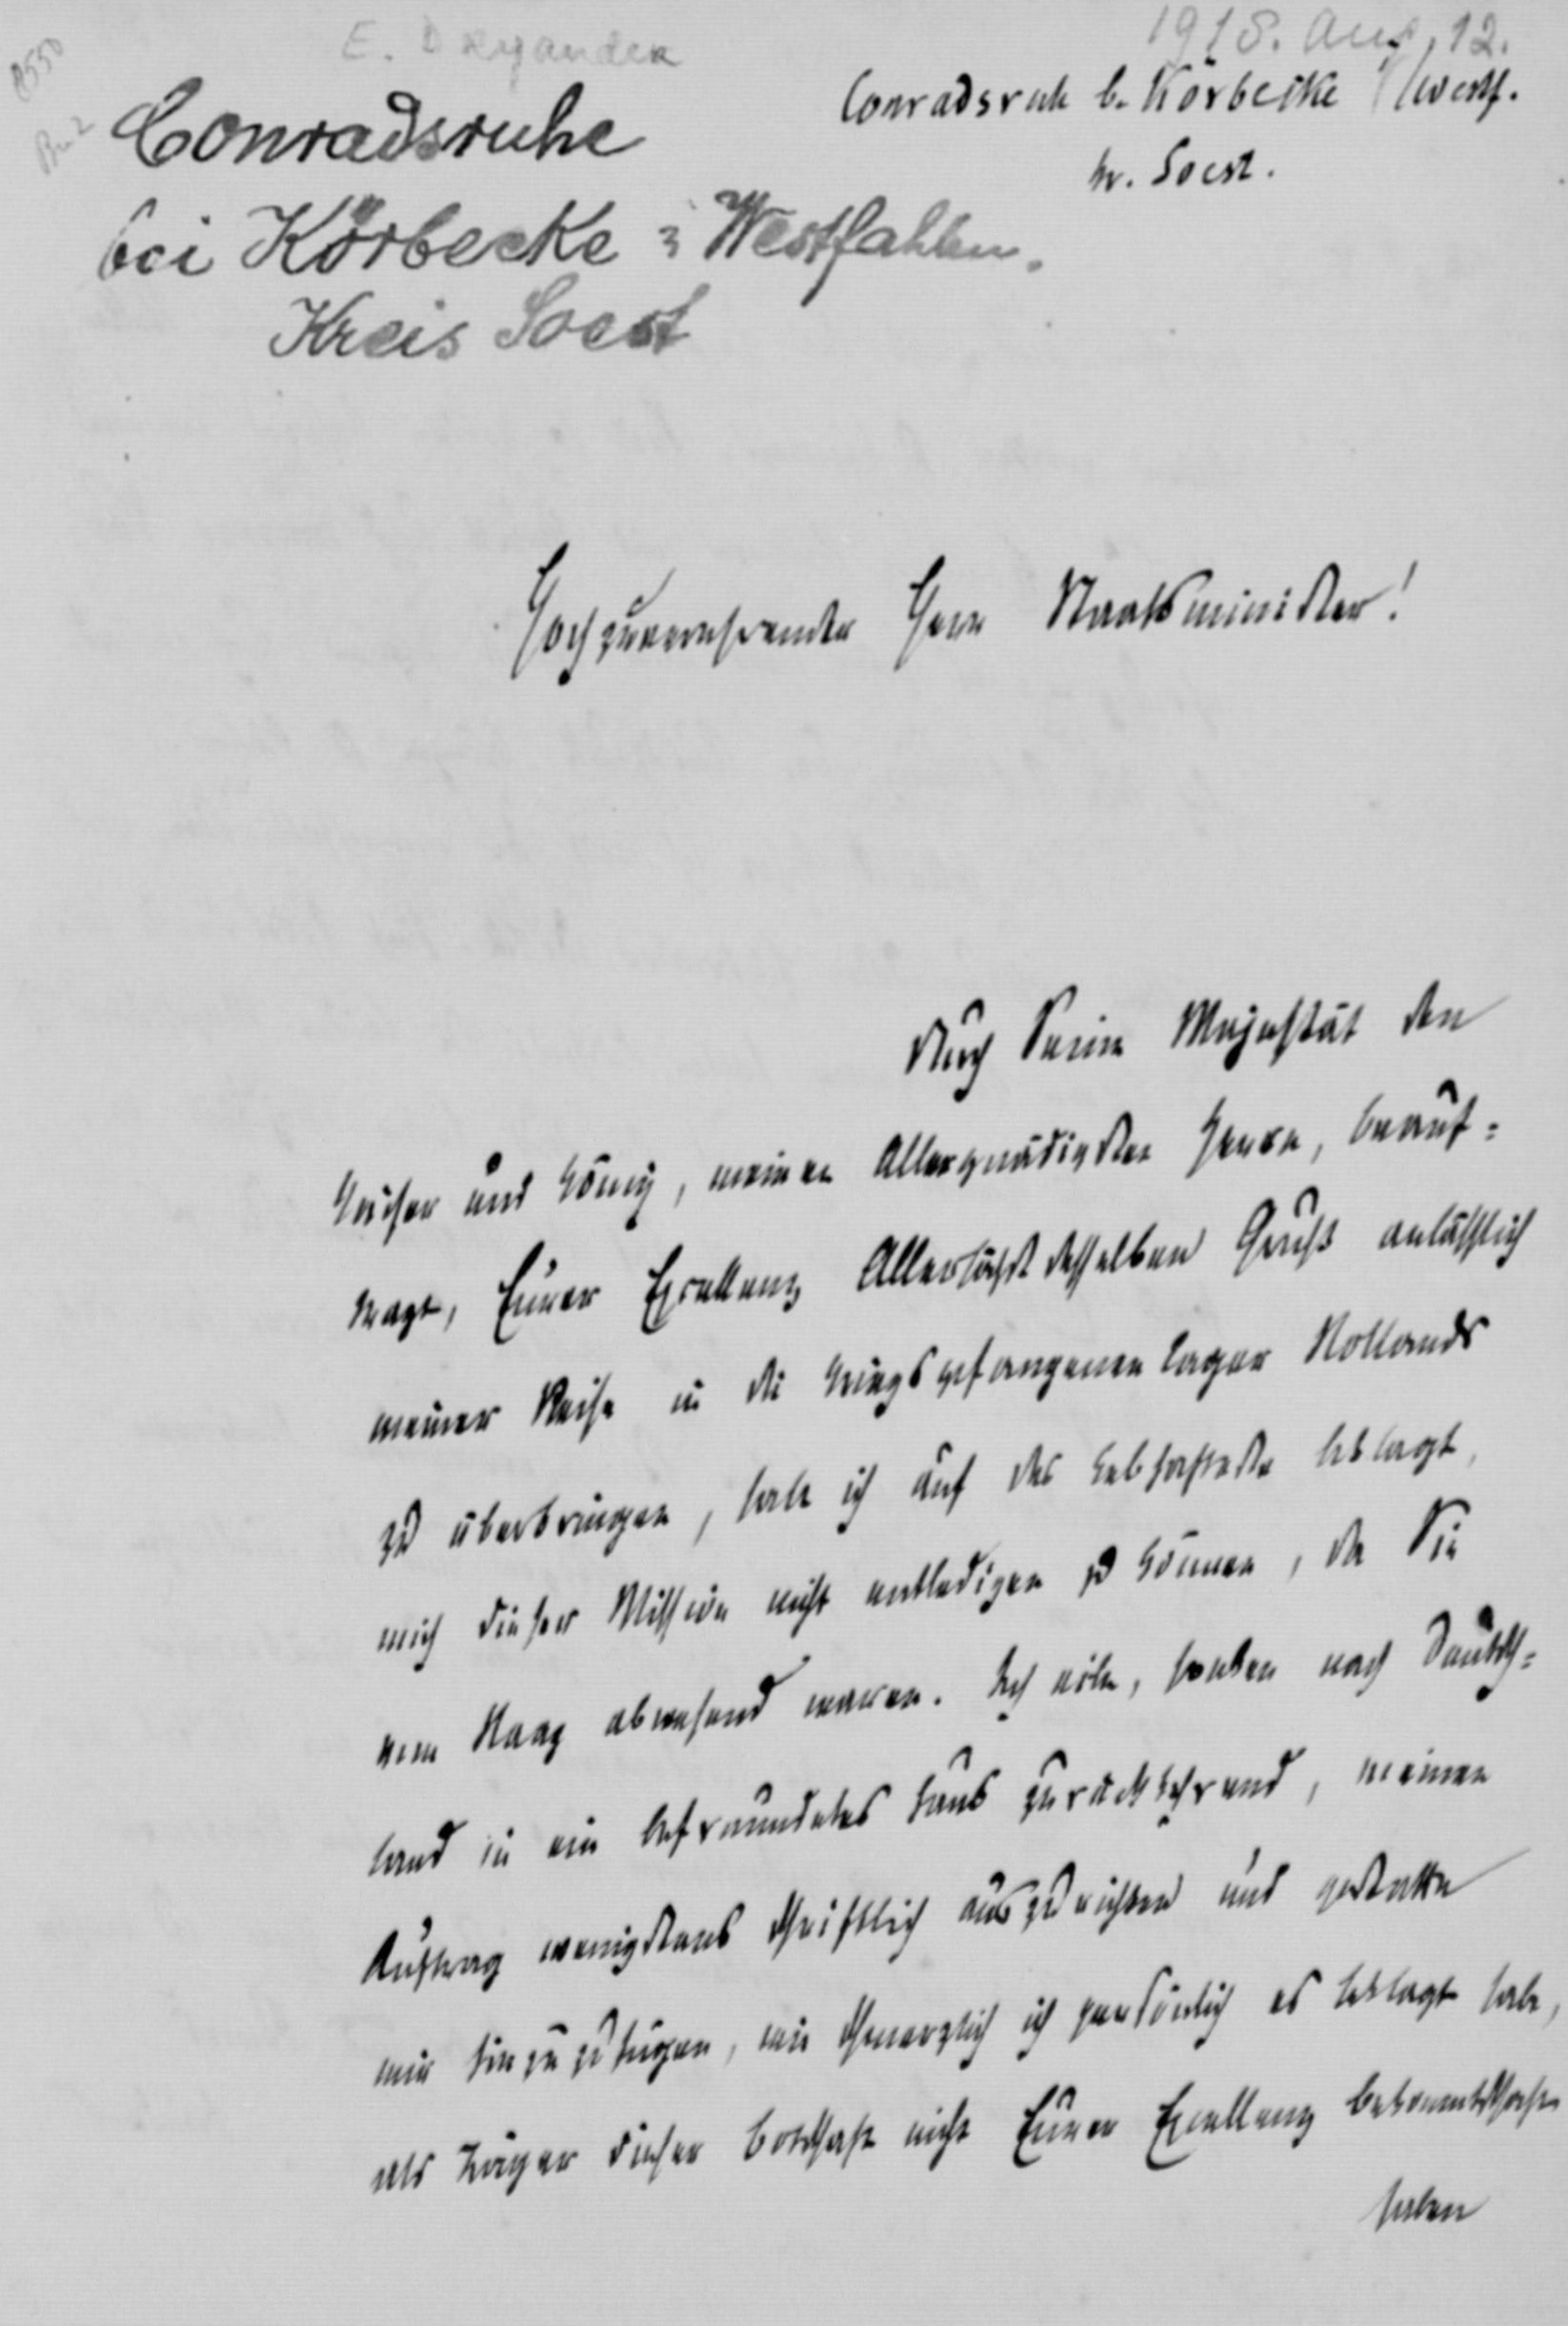 E. Dryander
1918. Aug. 12.
Conradsruh b. Körbecke i/Westf.
Kr. Soest.
Conradsruhe
bei Körbecke i Westfahlen.
Kreis Soest
Hochzuverehrender Herr Staatsminister!
Durch Seine Majestät den
Kaiser und König, meinen Allergnädigsten Herrn, beauf=
tragt, Eurer Excellenz Allerhöchstdesselben Gruß anläßlich
meiner Reise in die Kriegsgefangenenlager Hollands
zu überbringen, habe ich auf das Lebhafteste beklagt,
mich dieser Mission nicht entledigen zu können, da Sie
vom Haag abwesend waren. Ich eile, soeben nach Deutsch=
land in ein befreundetes Haus zurückkehrend, meinen
Auftrag wenigstens schriftlich auszurichten und gestatte
mir hinzuzufügen, wie schmerzlich ich persönlich es beklagt habe,
als Träger dieser Botschaft nicht Eurer Excellenz Bekanntschaft
haben